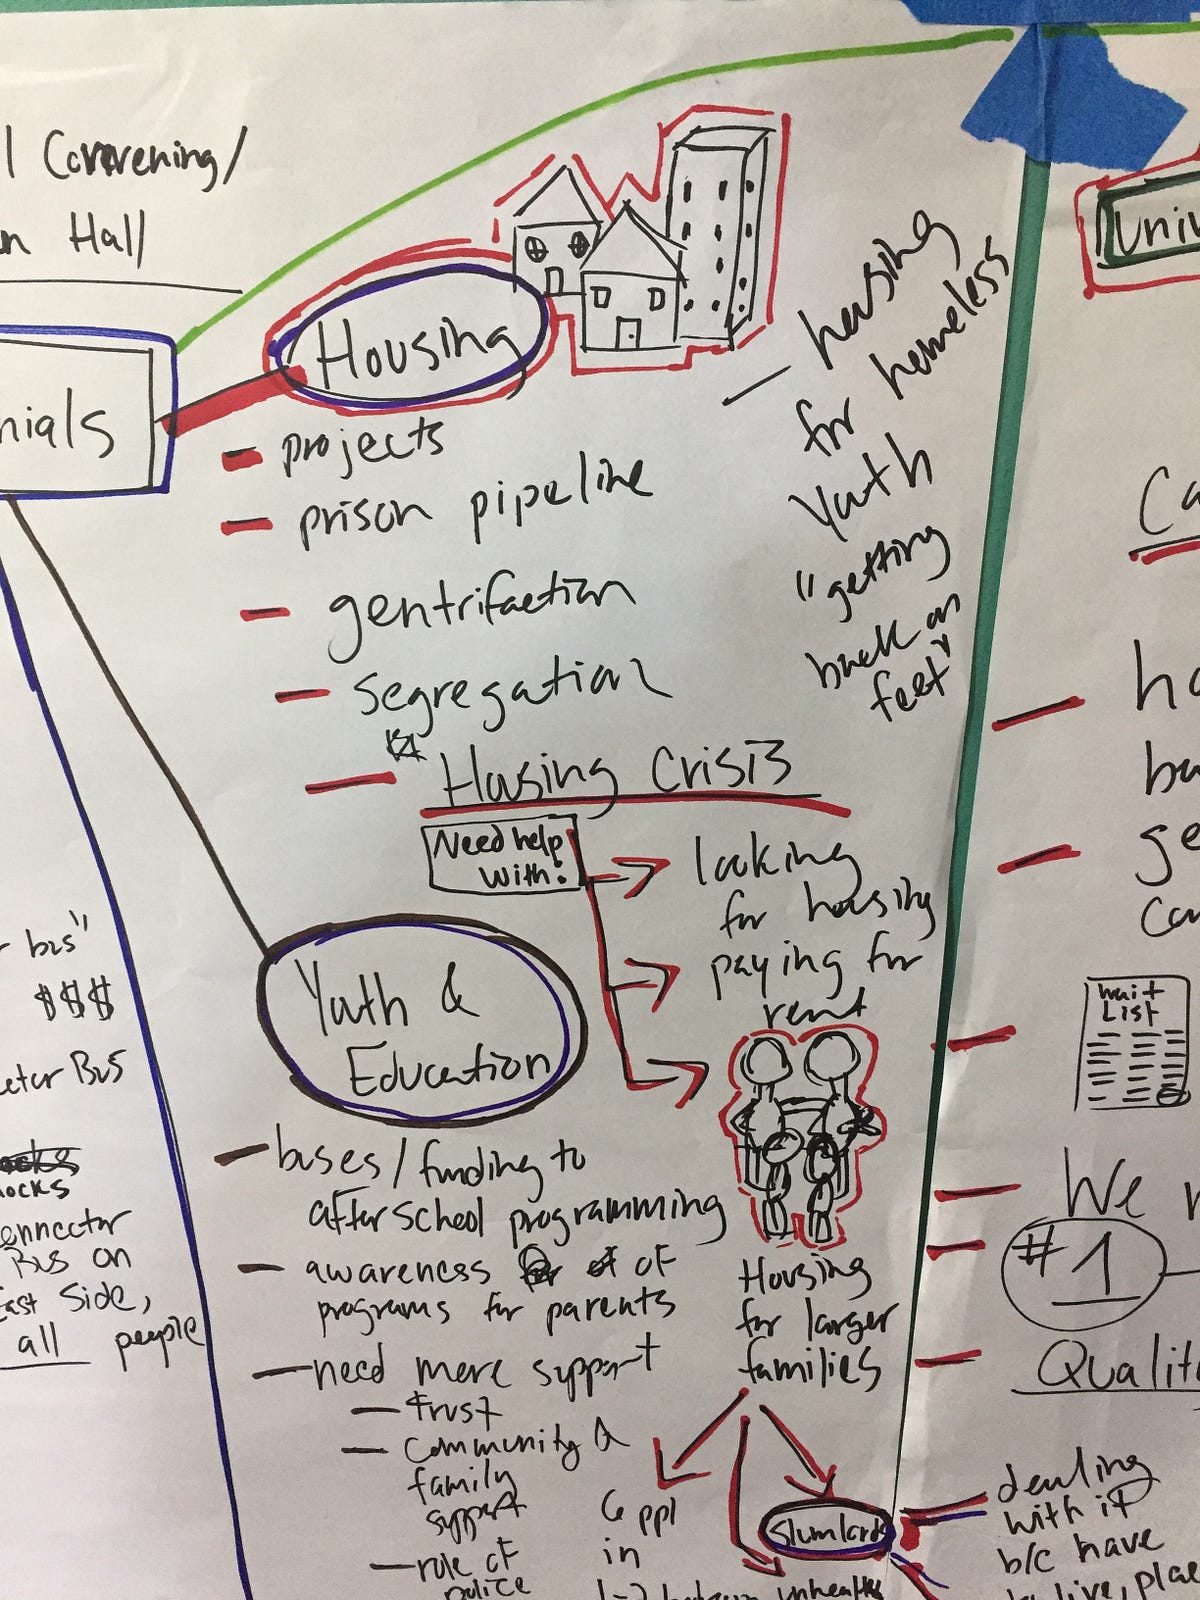 Convening/
Hall
nials
Housing
- projects
- prison pipeline
- gentrifaction
- segregation
- Housing Crisis
Need help
with:
looking
for housing
paying for
rent
Housing
for larger
families
6 ppl
in
unhealthy
Slumlords
- housing
for homeless
Youth
"getting
back on
feet"
Youth &
Education
- buses/funding to
afterschool programming
- awareness of
programs for parents
- need more support
- trust
- community &
family
support
- role of
police
bus"
$$$
Bus
ocks
Connector
Bus on
East Side,
all people
Univ
Ca
ha
ba
ge
Can
wait
List
We
#1
Qualit
dealing
with it
b/c have
to live, place